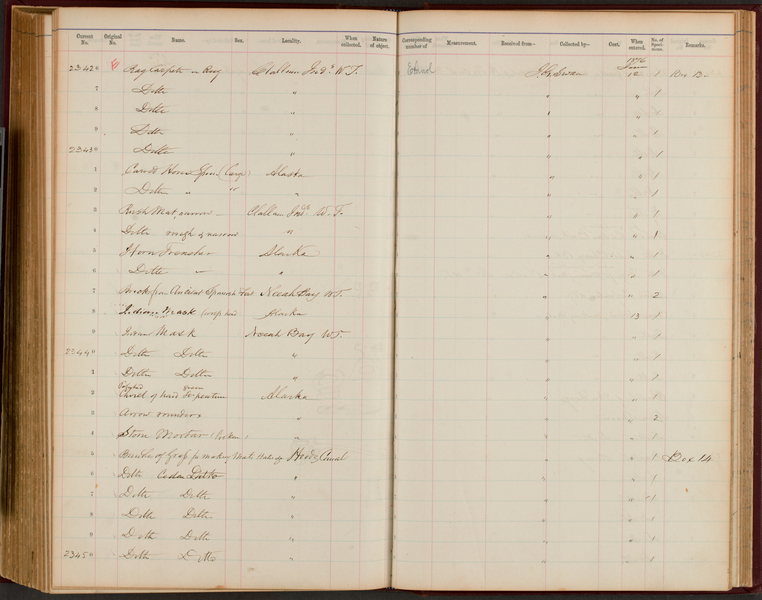 Current No. Original No. Name. Sex. Locality. When collected. Nature of object. Corresponding number of Measurement. Received from— Collected by— Cost. When entered. No. of Speci-mens. Remarks.
1876
23426 Rag Carpet or Rug Clallam Inds W.T. Ethnol J.G. Swan June 12 1 Box
7 Ditto " " " 1
8 Ditto " " " 1
9 Ditto " " "
23430 Ditto " " " 1
1 Horn Alaska " " 1
2 Ditto " " " " " 1
3 Rush Mat, narrow Clallam Inds W.T. " " 1
4 Ditto rough & narrow " " " 1
5 Horn Alaska " " 1
6 Ditto " " " " 1
7 from Ancient Spanish Fort Neeah Bay W.T. " " 2
8 Indian Mask Alaska " 13 1
9 Mask Neeah Bay W.T. " " 1
23440 Ditto Ditto " " " 1
1 Ditto Ditto " " " 1
2 Polished Chisel of hard Green Serpentine Alaska " "
3 Arrow " " " 2
4 Stone Mortar (broken) " " " 1
5 Bundle of Grass for making Mats " " 1 Box 14
6 Ditto Cedar Ditto " " " 1
7 Ditto Ditto " " "
8 Ditto Ditto " " " 1
9 Ditto Ditto " " " 1
23450 Ditto Ditto " " " 1